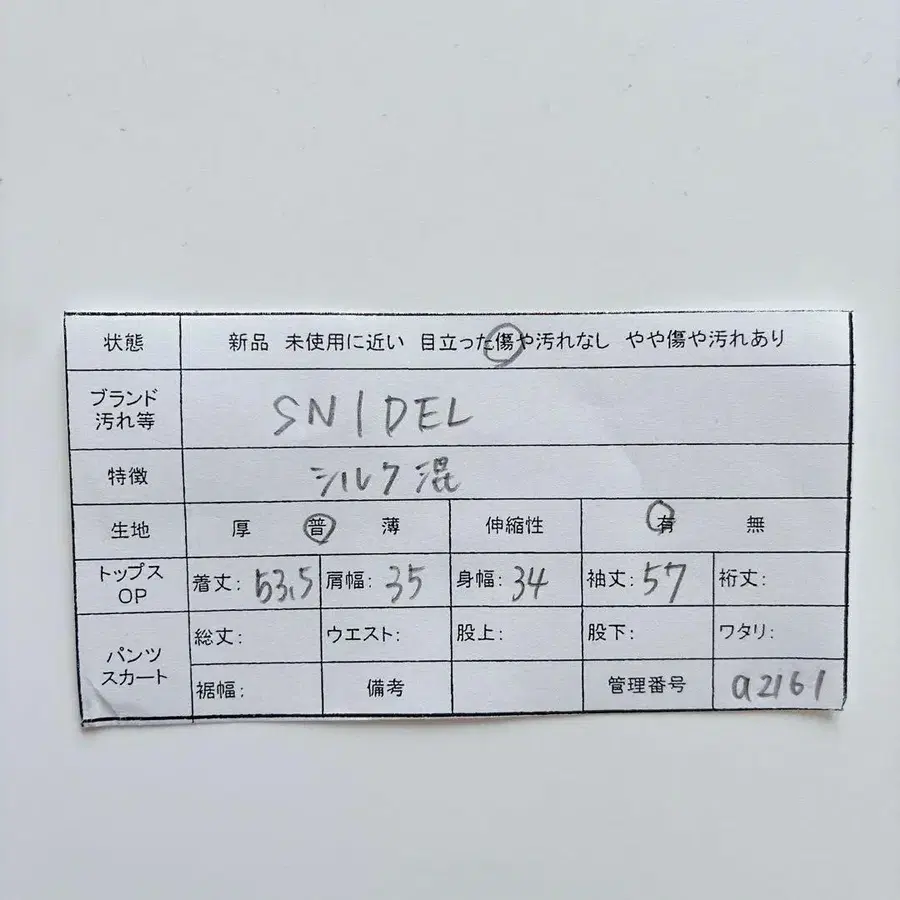 状態 新品 未使用に近い 目立った傷や汚れなし やや傷や汚れあり
ブランド
汚れ等 SNIDEL
特徴 シルク混
生地 厚 普 薄 伸縮性 有 無
トップス
OP 着丈: 53.5 肩幅: 35 身幅: 34 袖丈: 57 裄丈:
パンツ
スカート 総丈: ウエスト: 股上: 股下: ワタリ:
裾幅: 備考 管理番号 a2161